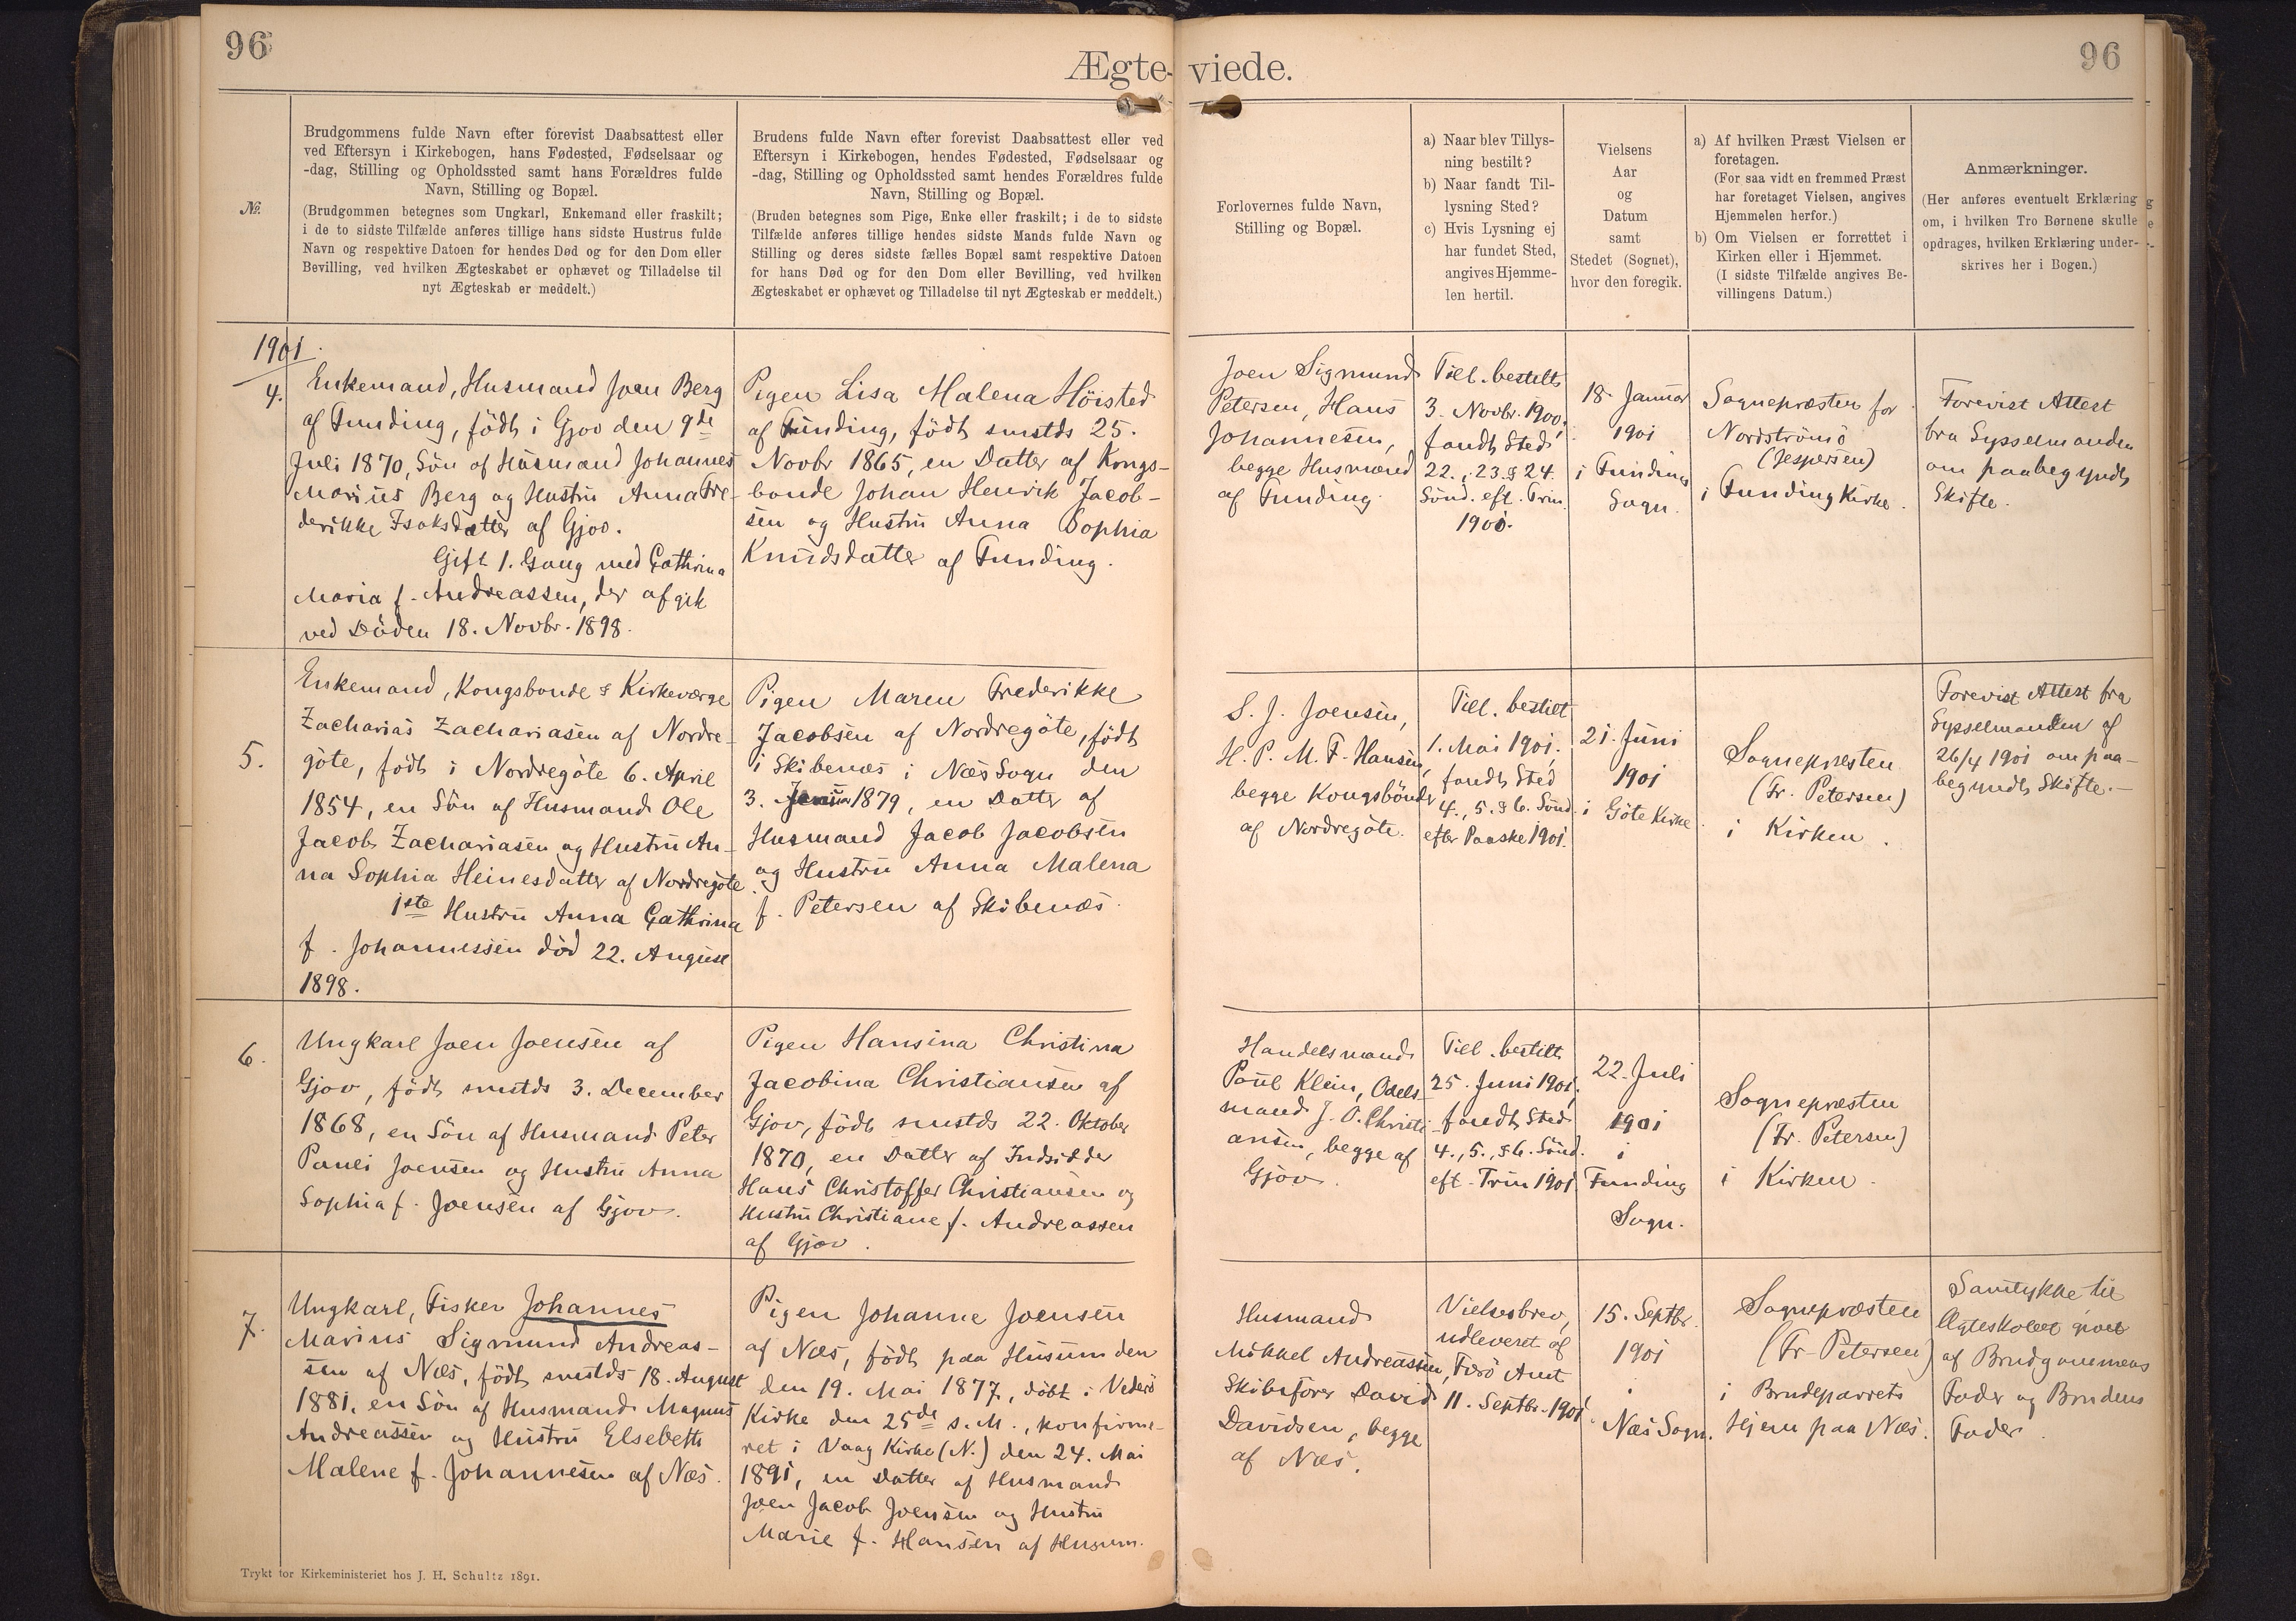 96
96
Ægte-viede.
№.
Brudgommens fulde Navn efter forevist Daabsattest eller
ved Eftersyn i Kirkebogen, hans Fødested, Fødselsaar og
-dag, Stilling og Opholdssted samt hans Forældres fulde
Navn, Stilling og Bopæl.
(Brudgommen betegnes som Ungkarl, Enkemand eller fraskilt;
i de to sidste Tilfælde anføres tillige hans sidste Hustrus fulde
Navn og respektive Datoen for hendes Død og for den Dom eller
Bevilling, ved hvilken Ægteskabet er ophævet og Tilladelse til
nyt Ægteskab er meddelt.)
Brudens fulde Navn efter forevist Daabsattest eller ved
Eftersyn i Kirkebogen, hendes Fødested, Fødselsaar og
-dag, Stilling og Opholdssted samt hendes Forældres fulde
Navn, Stilling og Bopæl.
(Bruden betegnes som Pige, Enke eller fraskilt; i de to sidste
Tilfælde anføres tillige hendes sidste Mands fulde Navn og
Stilling og deres sidste fælles Bopæl samt respektive Datoen
for hans Død og for den Dom eller Bevilling, ved hvilken
Ægteskabet er ophævet og Tilladelse til nyt Ægteskab er meddelt.)
Forlovernes fulde Navn,
Stilling og Bopæl.
a) Naar blev Tillys-
ning bestilt?
b) Naar fandt Til-
lysning Sted?
c) Hvis Lysning ej
har fundet Sted,
angives Hjemme-
len hertil.
Vielsens
Aar
og
Datum
samt
Stedet (Sognet),
hvor den foregik.
a) Af hvilken Præst Vielsen er
foretagen.
(For saa vidt en fremmed Præst
har foretaget Vielsen, angives
Hjemmelen herfor.)
b) Om Vielsen er forrettet i
Kirken eller i Hjemmet.
(I sidste Tilfælde angives Be-
villingens Datum.)
Anmærkninger.
(Her anføres eventuelt Erklæring
om, i hvilken Tro Børnene skulle
opdrages, hvilken Erklæring under-
skrives her i Bogen.)
1901.
4.
Enkemand, Husmand Joen Berg
af Funding, födt i Gjov den 9de
Juli 1870, Sön af Husmand Johannes
Marius Berg og Hustru Anna Fre-
derikke Isaksdatter af Gjov.
Gift 1. Gang med Cathrina
Maria f. Andreassen, der afgik
ved Döden 18. Novbr. 1898.
Pigen Lisa Malena Höisted
af Funding, födt smstds 25.
Novbr 1865, en Datter af Kongs-
bonde Johan Henrik Jacob-
sen og Hustru Anna Sophia
Knudsdatter af Funding.
Joen Sigmund
Petersen, Hans
Johannesen,
begge Husmænd
af Funding.
Till. bestilt
3. Novbr. 1900;
fandt Sted
22., 23. & 24.
Sönd. eft. Trin.
1900.
18. Januar
1901
i Funding
Sogn.
Sognepræsten for
Nordströmö
(Jespersen)
i Funding Kirke.
Forevist Attest
fra Sysselmanden
om paabegyndt
Skifte.
5.
Enkemand, Kongsbonde & Kirkeværge
Zacharias Zachariasen af Nordre-
göte, födt i Nordregöte 6. April
1854, en Sön af Husmand Ole
Jacob Zachariasen og Hustru An-
na Sophia Heinesdatter af Nordregöte.
1ste Hustru Anna Cathrina
f. Johannessen död 22. August
1898.
Pigen Maren Frederikke
Jacobsen af Nordregöte, födt
i Skibenæs i Næs Sogn den
3. 1879, en Datter af
Husmand Jacob Jacobsen
og Hustru Anna Malena
f. Petersen af Skibenæs.
S. J. Joensen,
H. P. M. F. Hansen,
begge Kongsbönder
af Nordregöte.
Till. bestilt
1. Mai 1901;
fandt Sted
4., 5. & 6. Sönd.
efter Paaske 1901.
21. Juni
1901
i Göte Kirke.
Sognepræsten
(Fr. Petersen)
i Kirken.
Forevist Attest fra
Sysselmanden af
26/4 1901 om paa-
begyndt Skifte.-
6.
Ungkarl Joen Joensen af
Gjov, födt smstds 3. December
1868, en Sön af Husmand Peter
Pauli Joensen og Hustru Anna
Sophia f. Joensen af Gjov.
Pigen Hansina Christina
Jacobina Christiansen af
Gjov, födt smstds 22. Oktober
1870, en Datter af Indsidder
Hans Christoffer Christiansen og
Hustru Christiane f. Andreassen
af Gjov.
Handelsmand
Poul Klein, Odels-
mand J. O. Christi-
ansen, begge af
Gjov.
Till. bestilt
25. Juni 1901;
fandt Sted
4., 5., & 6. Sönd.
eft. Trin 1901.
22. Juli
1901
i
Funding
Sogn.
Sognepræsten
(Fr. Petersen)
i Kirken.
7.
Ungkarl, Fisker Johannes
Marius Sigmund Andreas-
sen af Næs, födt smstds 18. August
1881, en Sön af Husmand Magnus
Andreassen og Hustru Elsebeth
Malene f. Johannesen af Næs.
Pigen Johanne Joensen
af Næs, födt paa Husum den
den 19. Mai 1877, döbt i Viderö
Kirke den 25de s. M., konfirme-
ret i Vaag Kirke (N.) den 24. Mai
1891, en Datter af Husmand
Joen Jacob Joensen og Hustru
Marie f. Hansen af Husum.
Husmand
Mikkel Andreassen,
Skibsförer David
Davidsen, begge
af Næs.
Vielsesbrev,
udleveret af
Færö Amt
11. Septbr. 1901.
15. Septbr.
1901
i
Næs Sogn.
Sognepræsten
(Fr. Petersen)
i Brudeparrets
Hjem paa Næs.
Samtykke til
Ægteskabet givet
af Brudgommens
Fader og Brudens
Fader.
Trykt for Kirkeministeriet hos J. H. Schultz 1891.